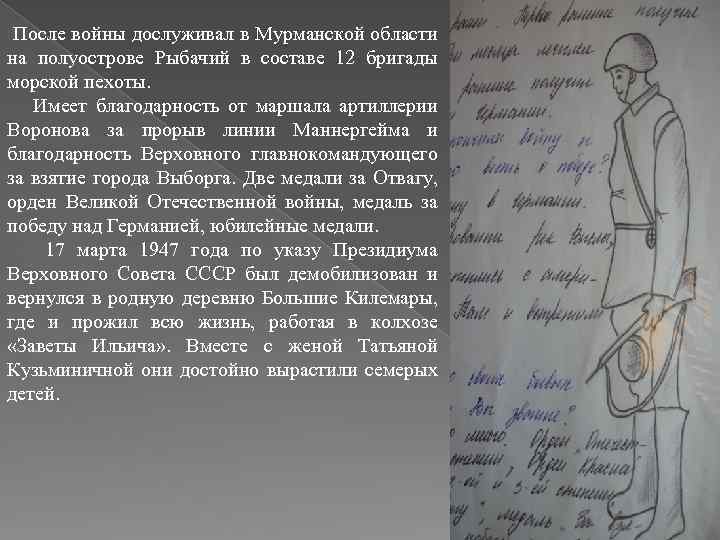 После войны дослуживал в Мурманской области
на полуострове Рыбачий в составе 12 бригады
морской пехоты.
Имеет благодарность от маршала артиллерии
Воронова за прорыв линии Маннергейма и
благодарность Верховного главнокомандующего
за взятие города Выборга. Две медали за Отвагу,
орден Великой Отечественной войны, медаль за
победу над Германией, юбилейные медали.
17 марта 1947 года по указу Президиума
Верховного Совета СССР был демобилизован и
вернулся в родную деревню Большие Килемары,
где и прожил всю жизнь, работая в колхозе
«Заветы Ильича» . Вместе с женой Татьяной
Кузьминичной они достойно вырастили семерых
детей.
получив
месяца
получив
Германии.
войну и
весть о победе?
в Германии.
рек Висла,
с амери-
и встретили
своих боевых
звание?
много. Орден „Отечест-
Орден Красной
и 3-ей степени
медаль „За